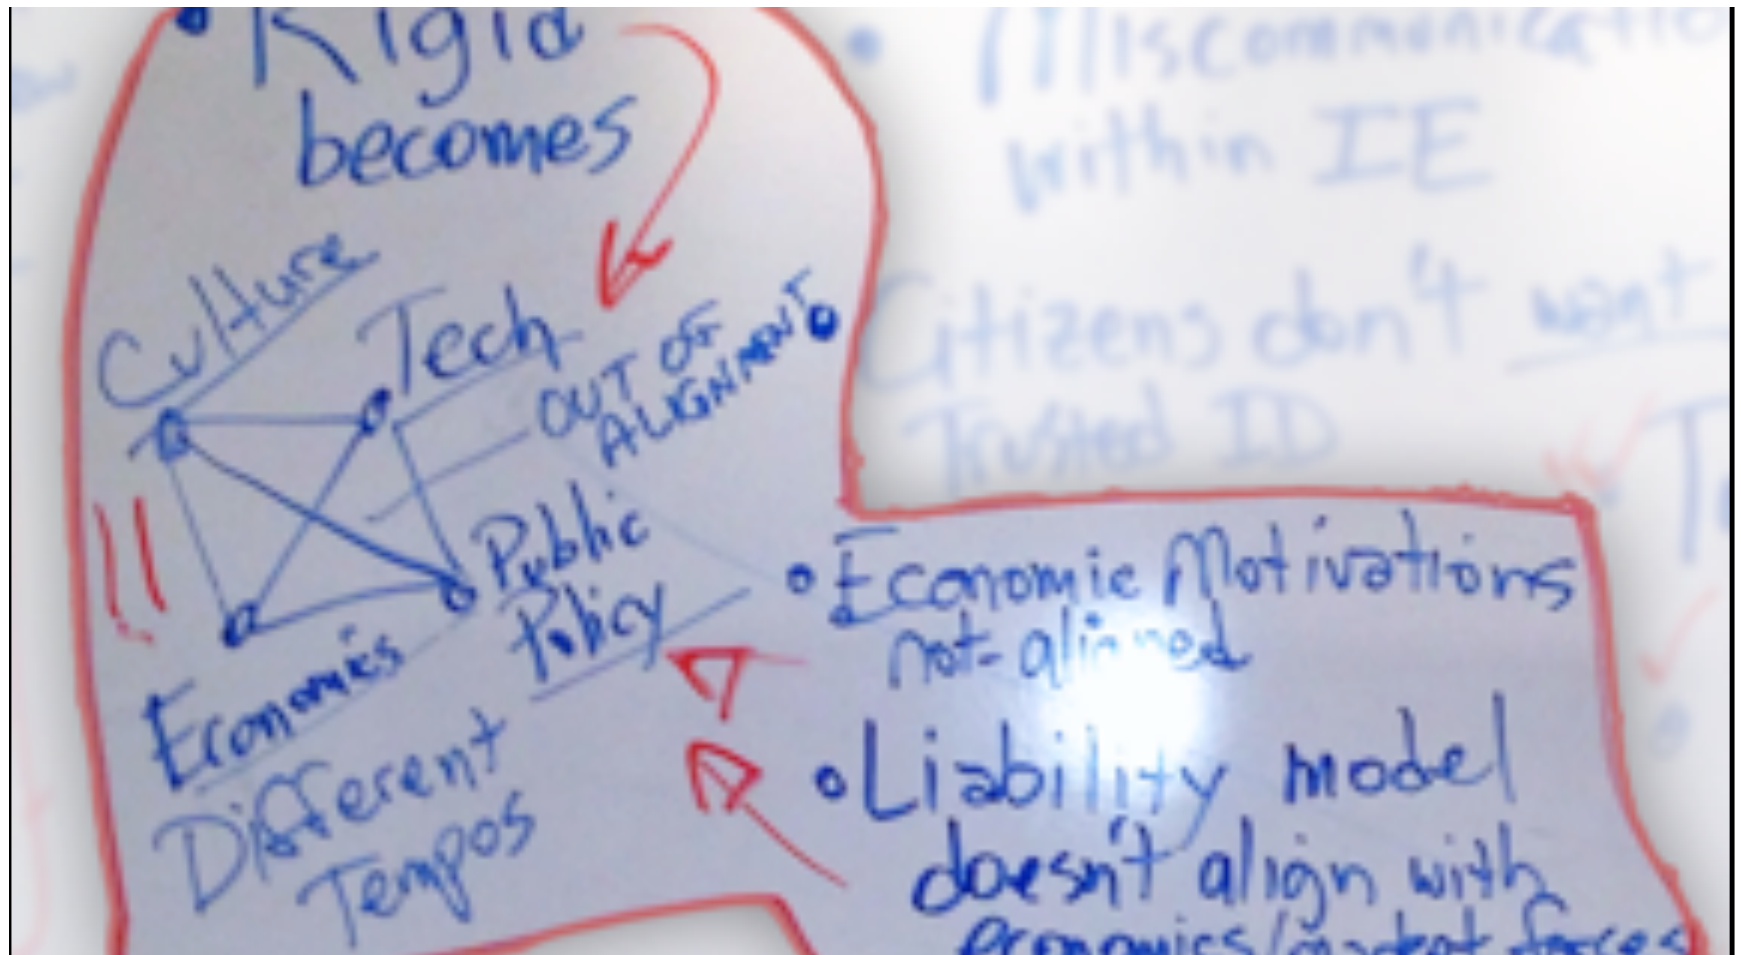 • Rigid
becomes
Culture
Tech
OUT OG
ALIGNMENT
!!
Public
Policy
Economics
Different
Tempos
• Miscommunicatio
within IE
• Citizens don't want
Trusted ID
• Economic Motivations
not aligned
• Liability model
doesn't align with
economics/market forces